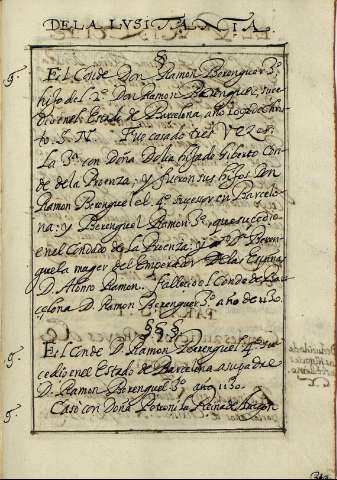 DE LA LVSITANIA.
§
El Conde Don Ramon Berenguer 3º,
hijo del 2º Don Ramon Berenguer, suce
dio en el Estado de Barcelona año de Chris
to. S. N. Fue casado tres VEZes.
La 3ª con Doña Dolia hija de Giberto Con
de de la Proenza; y fueron sus hijos Don
Ramon Berenguel el 4º sucesor en Barcelo
na: y Berenguel Ramon 3º, que sucedio
en el Condado de la Proenza: y Dª Beren
guela muger del Emperador de las Españas
D. Alonso Ramon. Fallecio el Conde de Bar
celona D. Ramon Berenguer 3º año de 1130.
§§§
El Conde D. Ramon Berenguel 4º su
cedio en el Estado de Barcelona a su padre
D. Ramon Berenguel 3º año 1130.
Casò con Doña Petronila Reina de Aragon